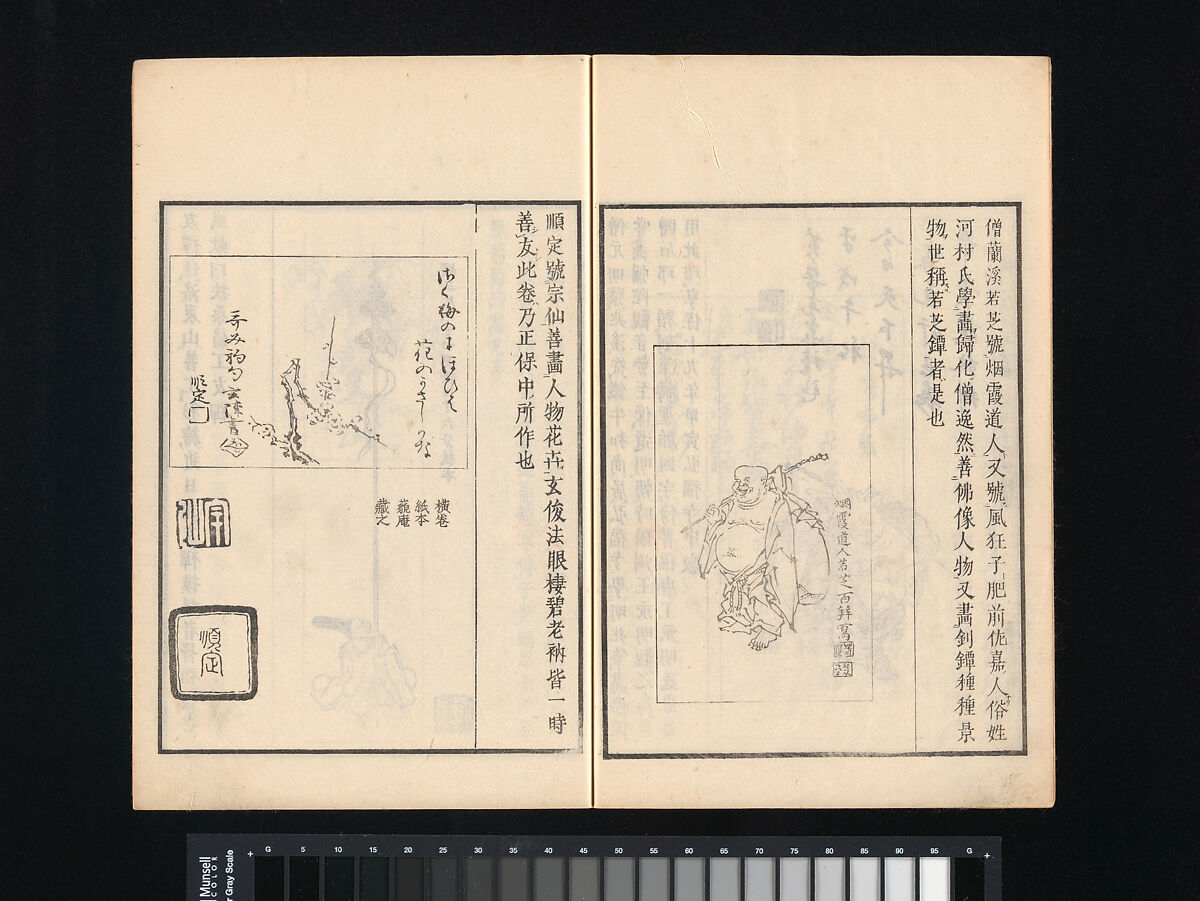 僧蘭溪若芝號烟霞道人又號風狂子肥前佐嘉人俗姓
河村氏學畫歸化僧逸然善佛像人物又畫釗鐔種種景
物世稱若芝鐔者是也
烟霞道人若芝百拜寫
順定號宗仙善畫人物花卉玄俊法眼棲碧老衲皆一時
善友此卷乃正保中所作也
花のかさしかな
順定
橫卷
紙本
蓺庵
藏之
順定
Munsell
COLOR
Gray Scale
G 5 10 15 20 25 30 35 40 45 50 55 60 65 70 75 80 85 90 95 G